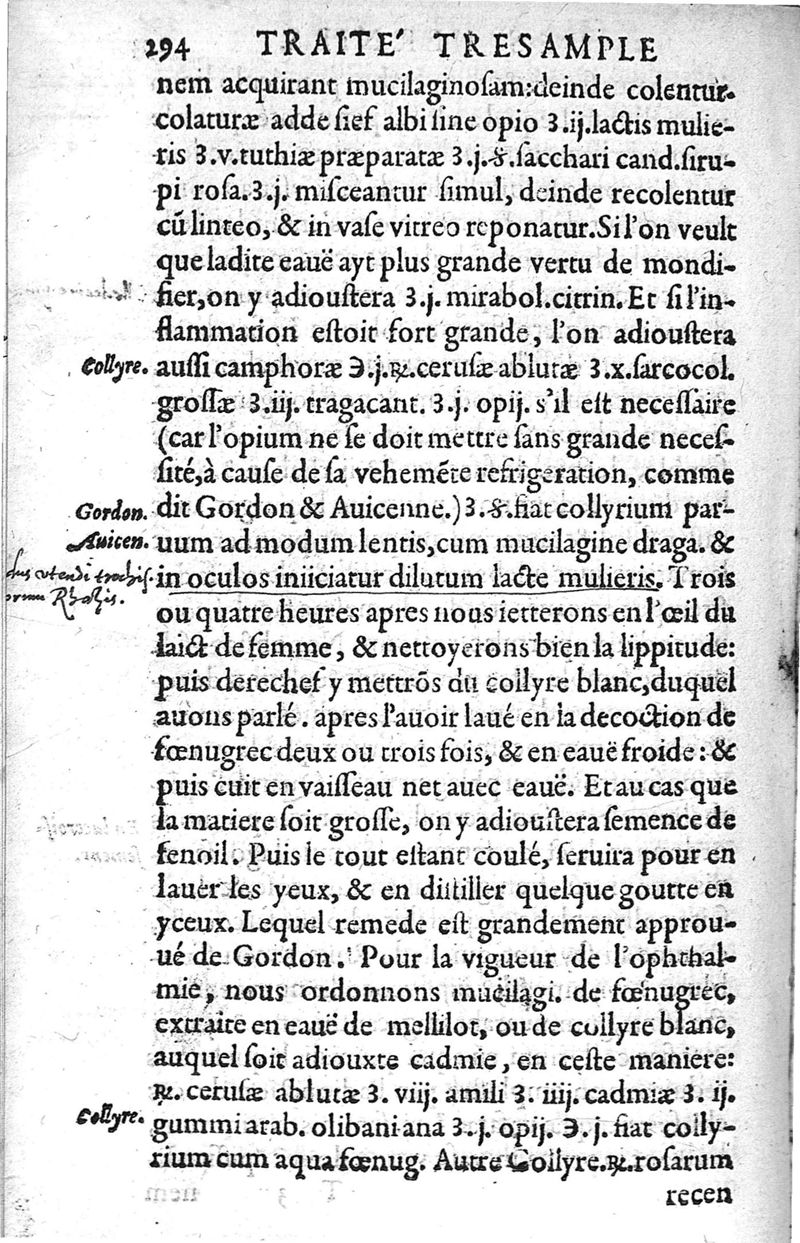 294 TRAITE' TRESAMPLE
nem acquirant mucilaginoſam:deinde colentur.
colaturæ adde ſief albi ſine opio ʒ.ij.lactis mulie-
ris ʒ.v.tuthiæ præparatæ ʒ.j.ß.ſacchari cand.ſiru-
pi roſa.ʒ.j. miſceantur ſimul, deinde recolentur
cū linteo, & in vaſe vitreo reponatur.Si l'on veult
que ladite eauë ayt plus grande vertu de mondi-
fier,on y adiouſtera ʒ.j.mirabol.citrin. Et ſi l'in-
flammation eſtoit fort grande, l'on adiouſtera
Collyre. auſſi camphoræ ℈.j.℞.ceruſæ ablutæ ʒ.x.ſarcocol.
groſſæ ʒ.iij. tragacant. ʒ.j. opij. s'il eſt neceſſaire
(car l'opium ne ſe doit mettre ſans grande neceſ-
ſité,à cauſe de ſa vehemēte refrigeration, comme
Gordon. dit Gordon & Auicenne.) ʒ.ß.fiat collyrium par-
Auicen. uum ad modum lentis,cum mucilagine draga. &
utendi trochiſ. in oculos iniiciatur dilutum lacte mulieris. Trois
Rhaſis. ou quatre heures apres nous ietterons en l'œil du
laict de femme, & nettoyerons bien la lippitude:
puis derechef y mettrōs du collyre blanc,duquel
auons parlé. apres l'auoir laué en la decoction de
fœnugrec deux ou trois fois, & en eauë froide: &
puis cuit en vaiſſeau net auec eauë. Et au cas que
la matiere ſoit groſſe, on y adiouſtera ſemence de
fenoil. Puis le tout eſtant coulé, ſeruira pour en
lauer les yeux, & en diſtiller quelque goutte en
yceux. Lequel remede eſt grandement approu-
ué de Gordon. Pour la vigueur de l'ophthal-
mie, nous ordonnons mucilagi. de fœnugrec,
extraite en eauë de mellilot, ou de collyre blanc,
auquel ſoit adiouxte cadmie, en ceſte maniere:
℞. ceruſæ ablutæ ʒ. viij. amili ʒ. iiij. cadmiæ ʒ. ij.
Collyre. gummi arab. olibani ana ʒ.j. opij. ℈.j. fiat colly-
rium cum aqua fœnug. Autre Collyre.℞.roſarum
recen